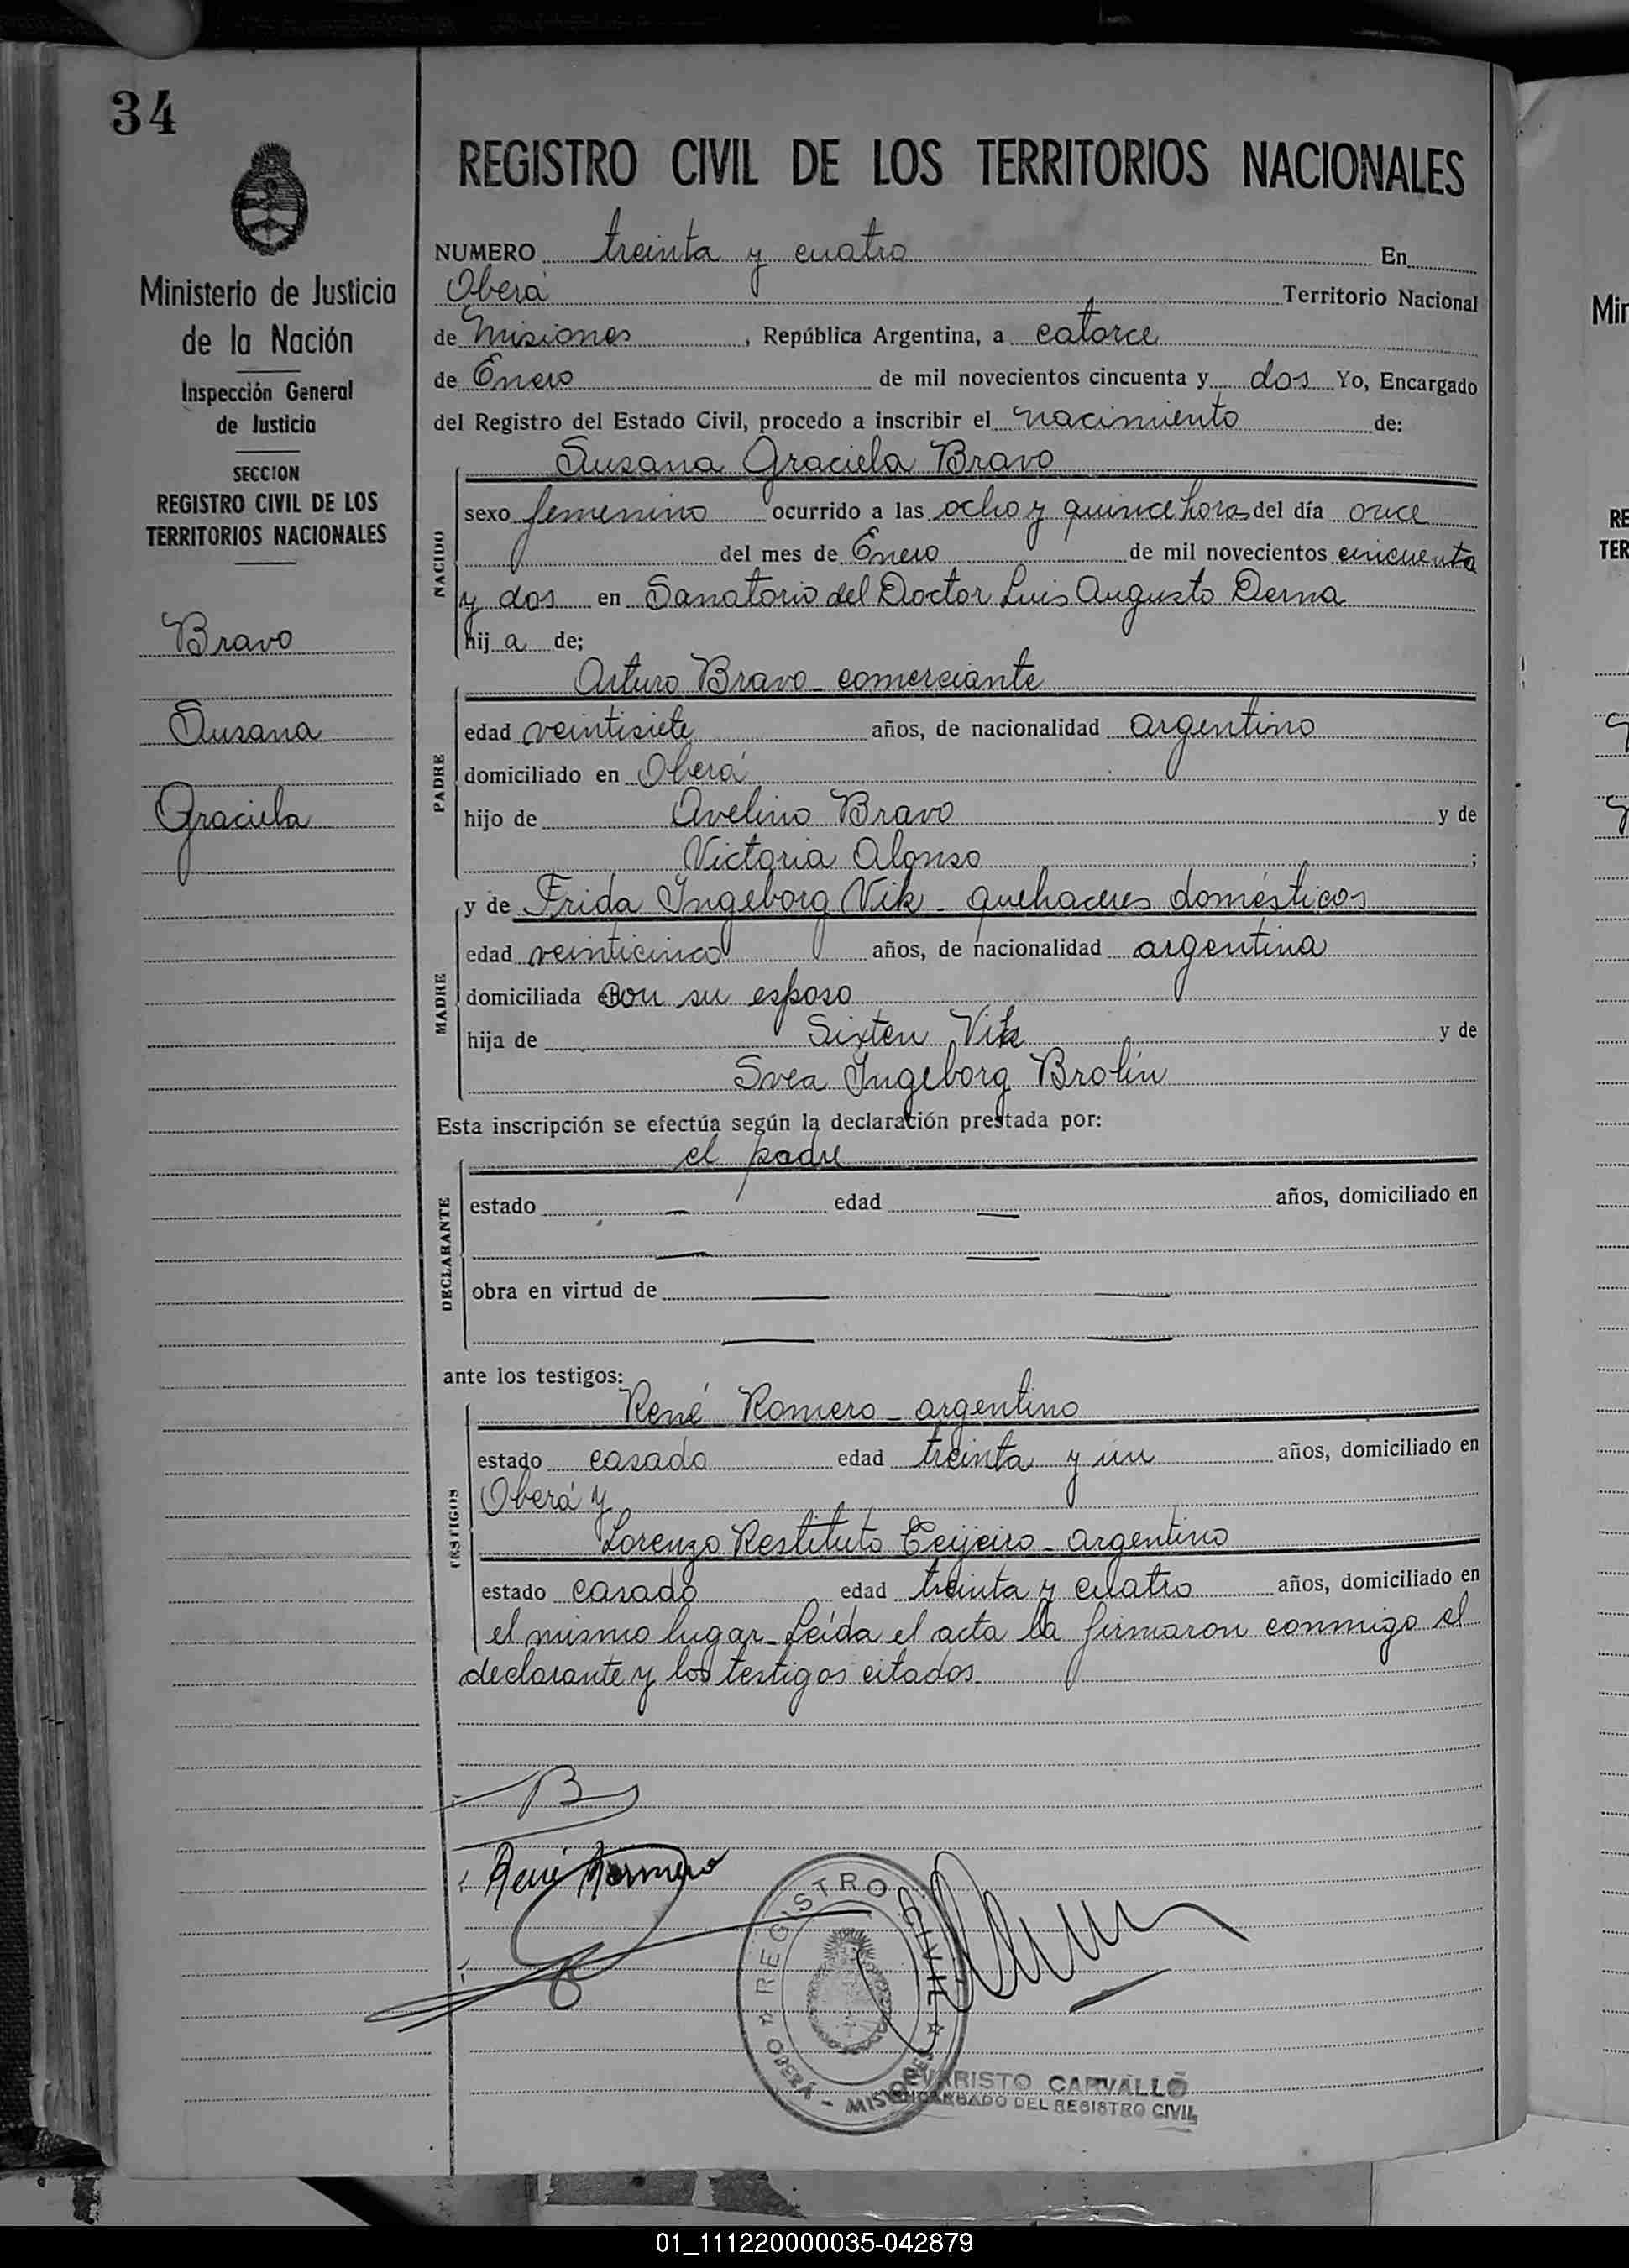 34
REGISTRO CIVIL DE LOS TERRITORIOS NACIONALES
Ministerio de Justicia
de la Nación
Inspección General
de Justicia
SECCION
REGISTRO CIVIL DE LOS
TERRITORIOS NACIONALES
Bravo
Susana
Graciela
NUMERO treinta y cuatro En
Oberá Territorio Nacional
de Misiones, República Argentina, a catorce
de Enero de mil novecientos cincuenta y dos Yo, Encargado
del Registro del Estado Civil, procedo a inscribir el nacimiento de:
Susana Graciela Bravo
NACIDO
sexo femenino ocurrido a las ocho y quince horas del día once
del mes de Enero de mil novecientos cincuenta
y dos en Sanatorio del Doctor Luis Augusto Derna
hij a de;
Arturo Bravo - comerciante
PADRE
edad veintisiete años, de nacionalidad argentino
domiciliado en Oberá
hijo de Avelino Bravo y de
Victoria Alonso ;
y de Frida Ingeborg Vik - quehaceres domésticos
MADRE
edad veinticinco años, de nacionalidad argentina
domiciliada con su esposo
hija de Sixten Vik y de
Svea Ingeborg Brolin
Esta inscripción se efectúa según la declaración prestada por:
el padre
DECLARANTE
estado — edad — años, domiciliado en
— —
obra en virtud de — —
— —
ante los testigos:
René Romero - argentino
TESTIGOS
estado casado edad treinta y un años, domiciliado en
Oberá y
Lorenzo Restituto Teijeiro - argentino
estado casado edad treinta y cuatro años, domiciliado en
el mismo lugar - Leída el acta la firmaron conmigo el
declarante y los testigos citados.
René Romero
REGISTRO CIVIL
OBERÁ - MISIONES
EVARISTO CARVALLO
ENCARGADO DEL REGISTRO CIVIL
Min
RE
TER
01_111220000035-042879